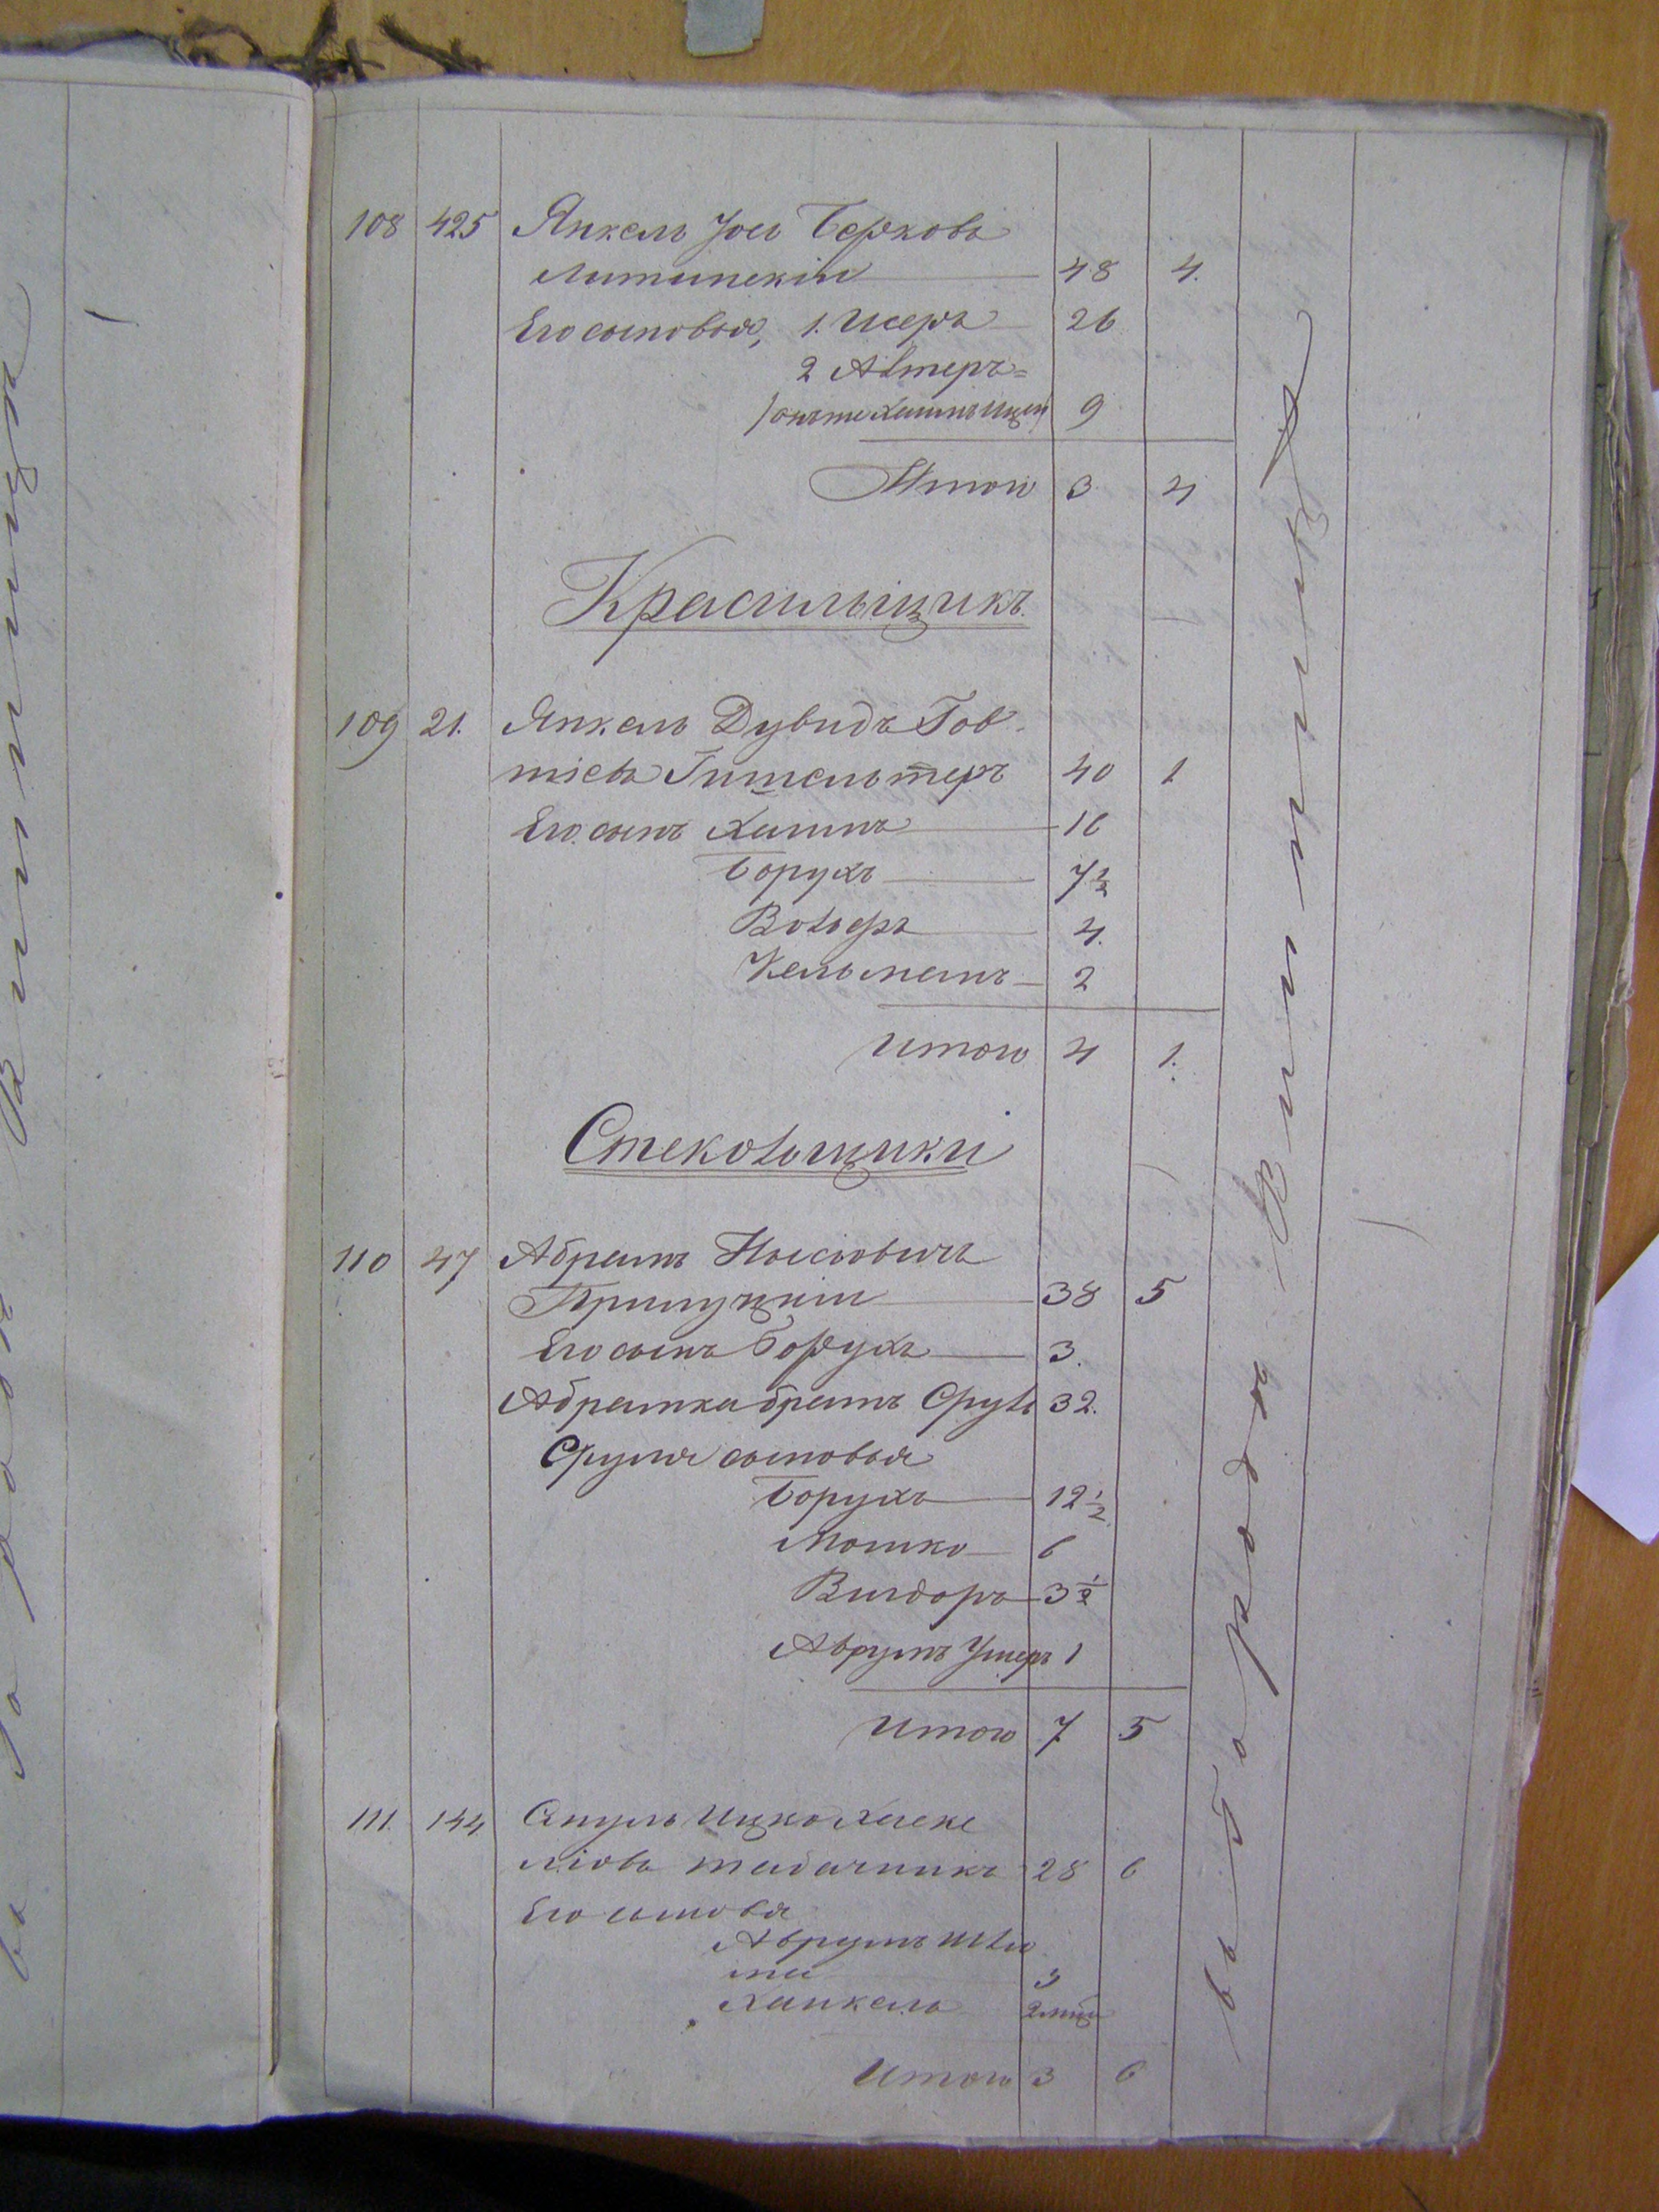 108 425 Янкель Іосъ Берковъ
Литинскій 48 4.
Его сыновья, 1. Исеръ 26
2 Алтеръ=
/онъ же Хаимъ Ицекъ/ 9
Итого 3 4
Красильщикъ.
109 21. Янкель Дувидъ Гов-
шіевъ Гительтеръ 40 1
Его сынъ Хаимъ 16
Борухъ 7½
Вольфъ 4.
Кельманъ 2
Итого 4 1.
Стекольщики
110 47 Абрамъ Нысіовичъ
Прилуцкій 38 5
Его сынъ Борухъ 3.
Абрамка братъ Сруль 32.
Сруля сыновья
Борухъ 12½
Мошко 6
Вигдоръ 3½
Аврумъ Ушеръ 1
Итого 7 5
111. 144 Ицко Хаске
ліовъ табачникъ 28 6
Его сыновья
Аврумъ Шлио
ма 3
Ханкель 2 мц
Итого 3 6
въ городѣ Винницѣ